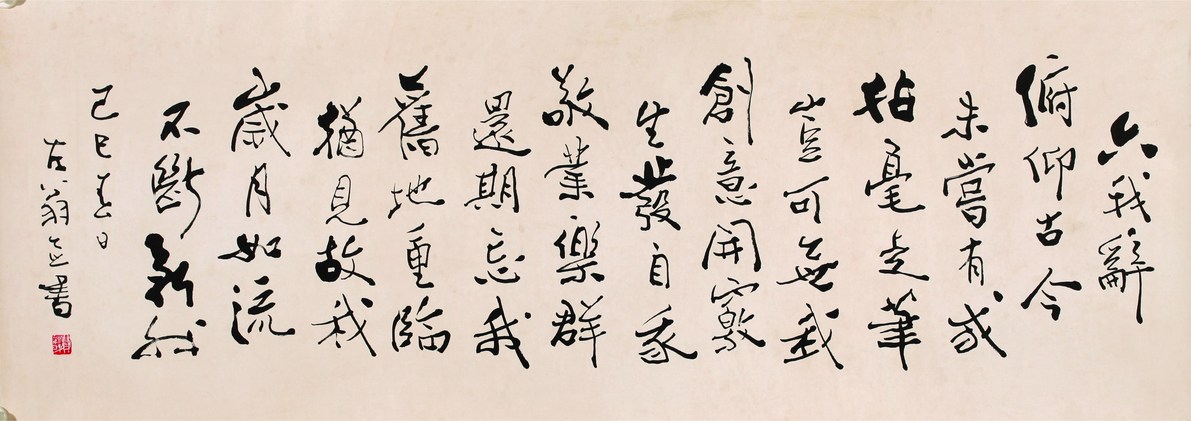 六我辭
俯仰古今
未嘗有我
拈毫走筆
豈可無我
創意開竅
生發自我
敬業樂群
還期忘我
舊地重臨
猶見故我
歲月如流
不斷新我
己巳春日
翁書